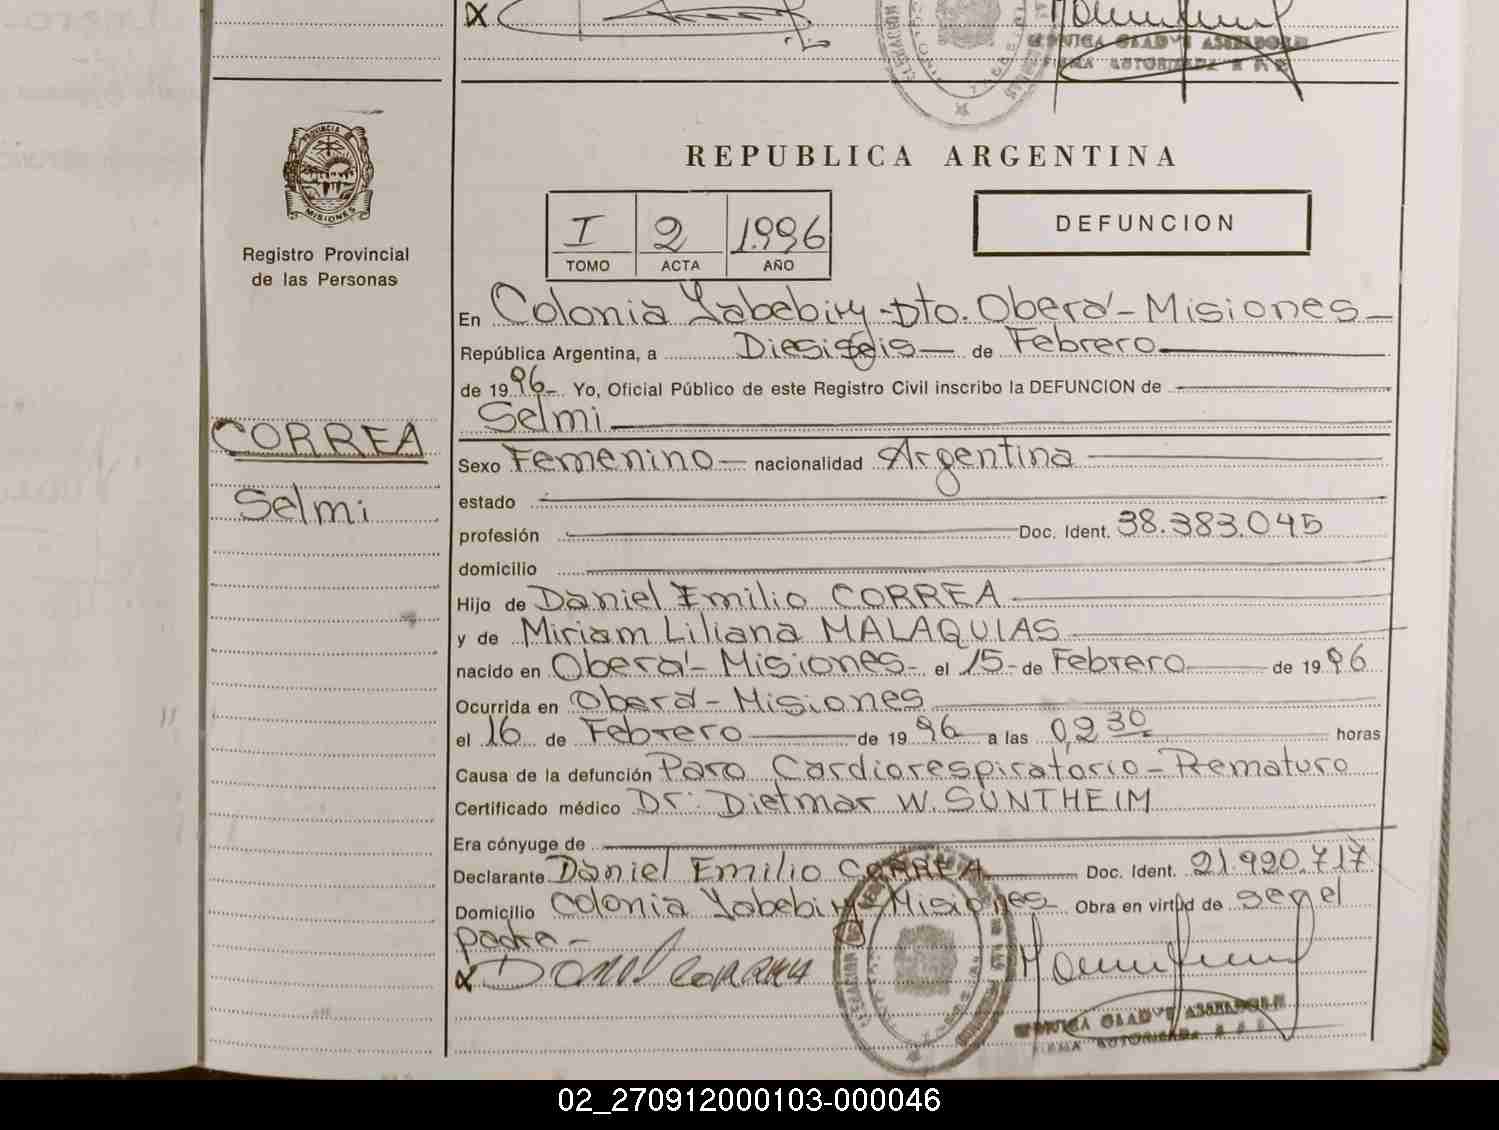 MONICA GLADYS ASSELBORN
FIRMA AUTORIZADA
REPUBLICA ARGENTINA
PROVINCIA
MISIONES
Registro Provincial
de las Personas
I 2 1.996
TOMO ACTA AÑO
DEFUNCION
En Colonia Yabebiry - Dto. Oberá - Misiones
República Argentina, a Diesiseis de Febrero
de 1996 Yo, Oficial Público de este Registro Civil inscribo la DEFUNCION de
Selmi
CORREA
Selmi
Sexo Femenino nacionalidad Argentina
estado
profesión Doc. Ident. 38.383.045
domicilio
Hijo de Daniel Emilio CORREA
y de Miriam Liliana MALAQUIAS
nacido en Oberá - Misiones - el 15 - de Febrero de 1996
Ocurrida en Oberá - Misiones
el 16 de Febrero de 1996 a las 0,2 30 horas
Causa de la defunción Paro Cardiorespiratorio - Prematuro
Certificado médico Dr: Dietmar W. SUNTHEIM
Era cónyuge de
Declarante Daniel Emilio CORREA Doc. Ident. 21.920.717
Domicilio Colonia Yabebiry - Misiones Obra en virtud de ser el
padre -
x Daniel Correa
MONICA GLADYS ASSELBORN
FIRMA AUTORIZADA
02_270912000103-000046